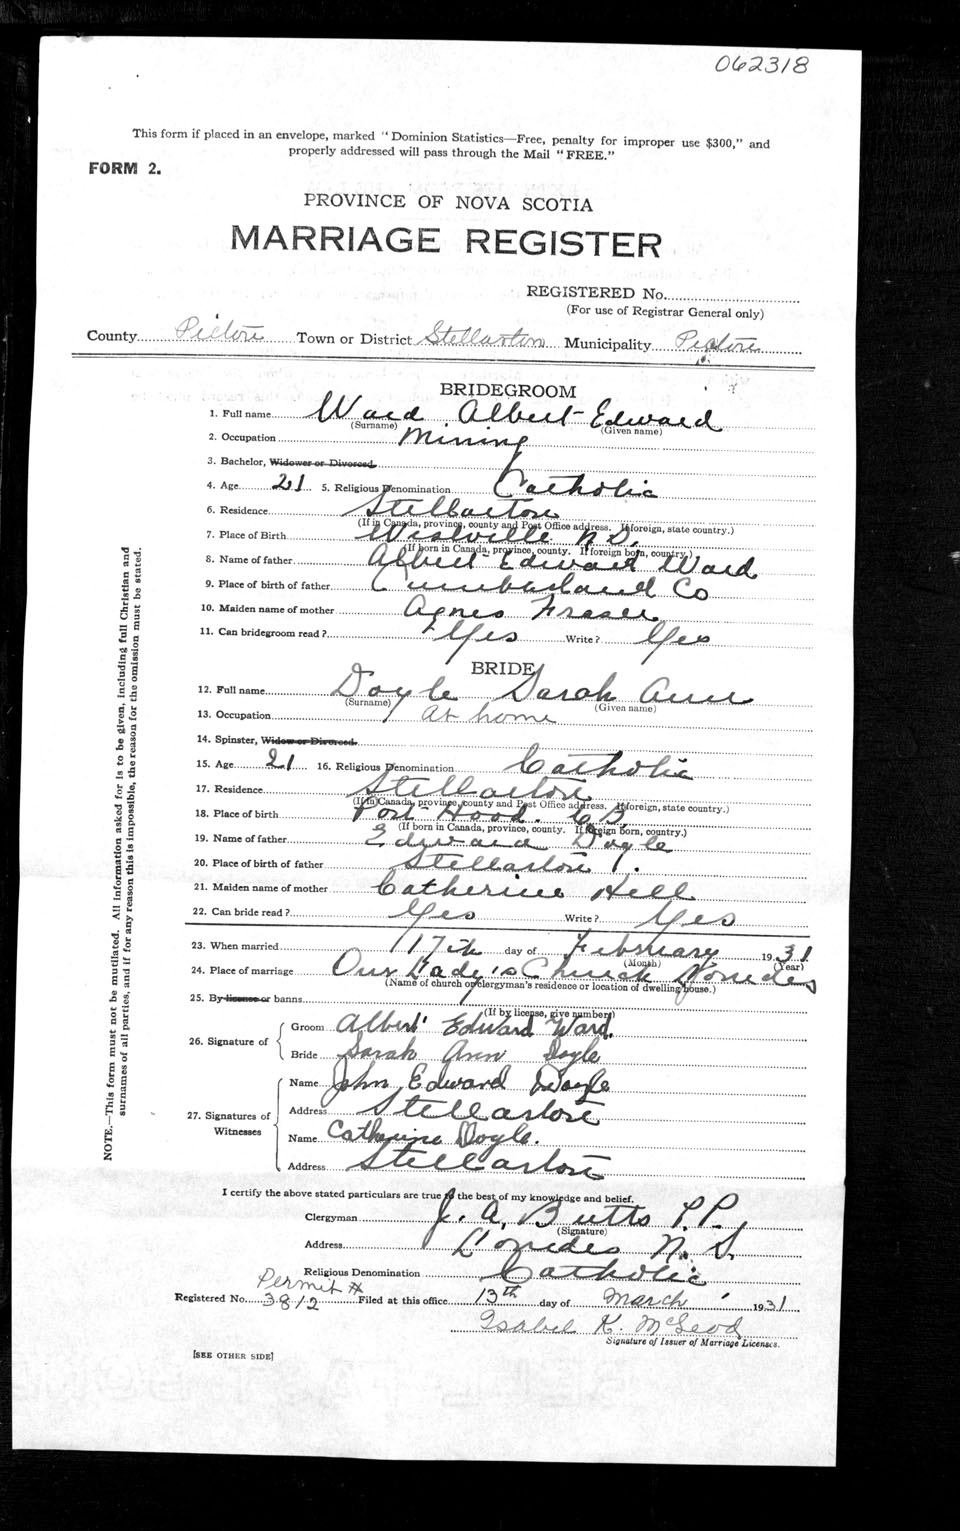 062318
This form if placed in an envelope, marked "Dominion Statistics—Free, penalty for improper use $300," and
properly addressed will pass through the Mail "FREE."
FORM 2.
PROVINCE OF NOVA SCOTIA
MARRIAGE REGISTER
REGISTERED No.
(For use of Registrar General only)
County Pictou Town or District Stellarton Municipality Pictou
BRIDEGROOM
1. Full name Ward Albert Edward
(Surname) (Given name)
2. Occupation Mining
3. Bachelor, Widower or Divorced
4. Age 21 5. Religious Denomination Catholic
6. Residence Stellarton
(If in Canada, province, county and Post Office address. If foreign, state country.)
7. Place of Birth Westville N.S.
(If born in Canada, province, county. If foreign born, country.)
8. Name of father Albert Edward Ward
9. Place of birth of father Cumberland Co
10. Maiden name of mother Agnes Fraser
11. Can bridegroom read? Yes Write? Yes
BRIDE
12. Full name Doyle Sarah Ann
(Surname) (Given name)
13. Occupation at home
14. Spinster, Widow or Divorced
15. Age 21 16. Religious Denomination Catholic
17. Residence Stellarton
(If in Canada, province, county and Post Office address. If foreign, state country.)
18. Place of birth Port Hood. C B.
(If born in Canada, province, county. If foreign born, country.)
19. Name of father Edward Doyle
20. Place of birth of father Stellarton
21. Maiden name of mother Catherine Hill
22. Can bride read? Yes Write? Yes
23. When married 17th day of February 1931
(Month) (Year)
24. Place of marriage Our Lady's Church Lourdes
(Name of church or clergyman's residence or location of dwelling house.)
25. By license or banns
(If by license, give number)
26. Signature of Groom Albert Edward Ward.
Bride Sarah Ann Doyle
27. Signatures of Witnesses Name John Edward Doyle
Address Stellarton
Name Catherine Doyle.
Address Stellarton
I certify the above stated particulars are true to the best of my knowledge and belief.
Clergyman J. A. Butts P.P.,
(Signature)
Address Lourdes N. S.
Religious Denomination Catholic
Permit #
Registered No. 3812 Filed at this office 13th day of March 1931
Isabel K. McLeod
Signature of Issuer of Marriage Licenses.
[SEE OTHER SIDE]
NOTE.—This form must not be mutilated. All information asked for is to be given, including full Christian and
surnames of all parties, and if for any reason this is impossible, the reason for the omission must be stated.